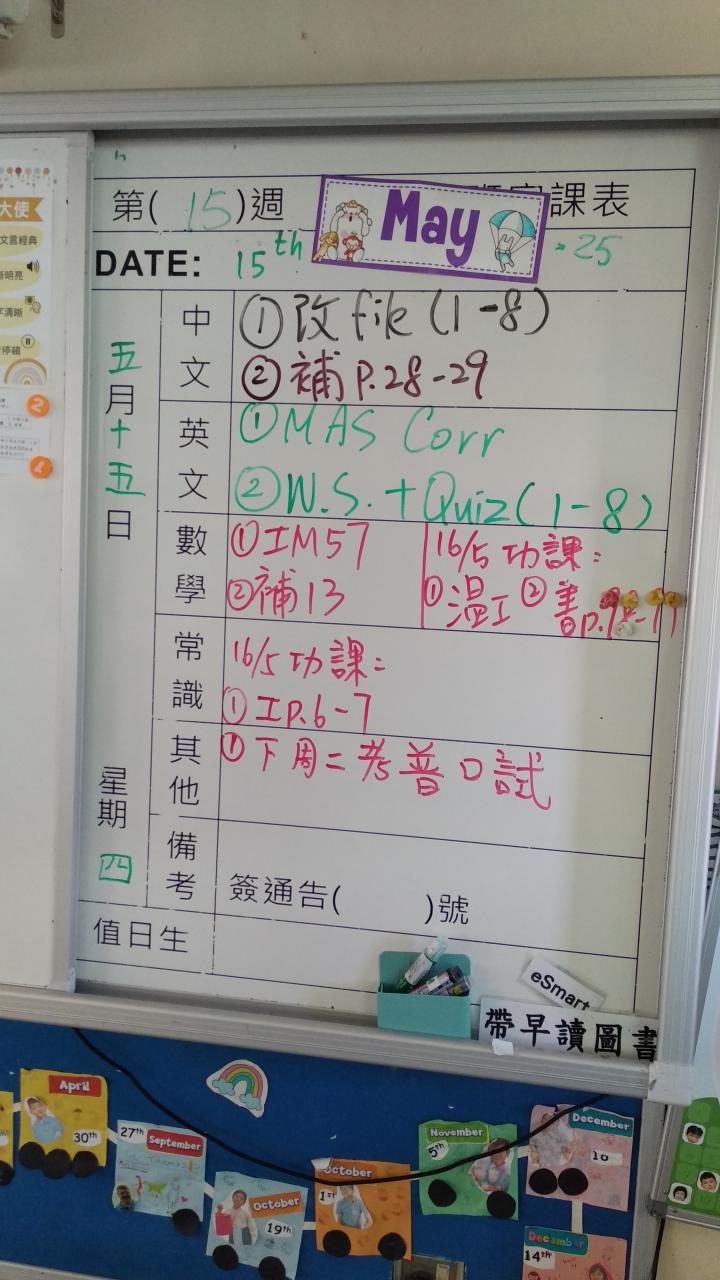 大使
文言經典
晰明亮
字清晰
停頓
第(15)週
May
課表
DATE: 15th
.25
五月十五日
星期四
中文
①改file(1-8)
②補P.28-29
英文
①MAS Corr
②W.S.+Quiz(1-8)
數學
①工M57
②補13
16/5功課:
①温工②書p.
常識
16/5功課:
①工P.6-7
其他
①下周二考普口試
備考
簽通告( )號
值日生
eSmart
帶早讀圖書
2
1
April
30th
27th
September
October
19th
October
1st
November
5th
December
10
December
14th